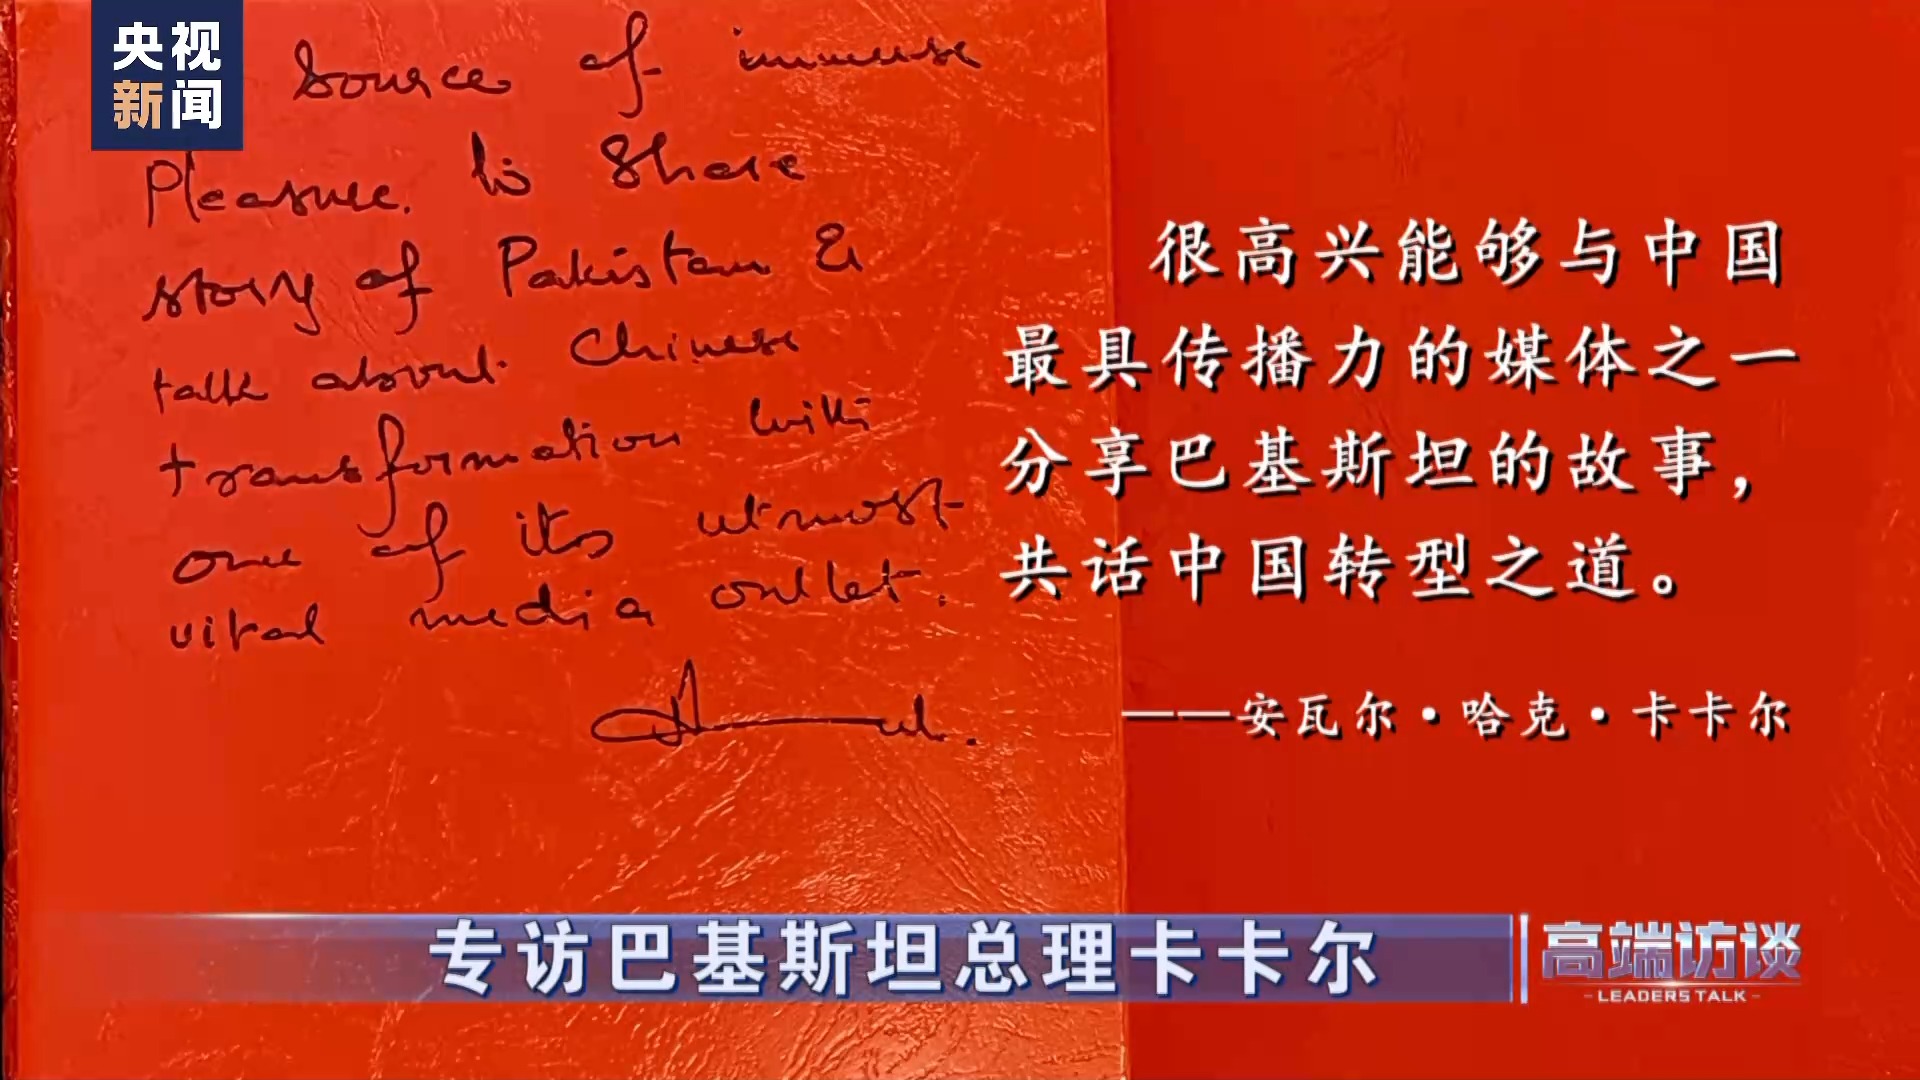 央视
新闻
Source of immense
Pleasure. to Share
story of Pakistan &
talk about Chinese
transformation with
one of its utmost
vital media outlet.
很高兴能够与中国
最具传播力的媒体之一
分享巴基斯坦的故事，
共话中国转型之道。
——安瓦尔·哈克·卡卡尔
专访巴基斯坦总理卡卡尔
高端访谈
-LEADERS TALK-